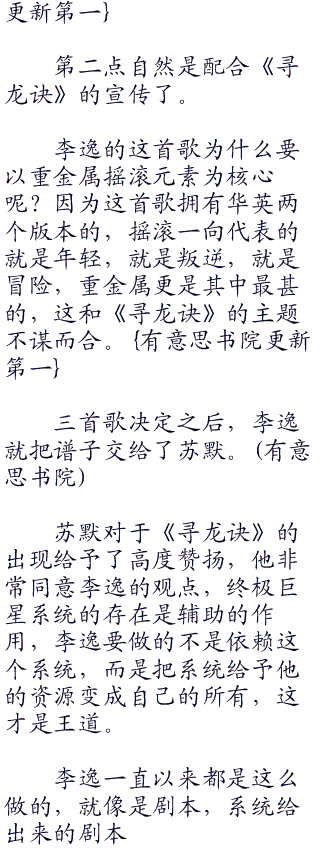 更新第一}
第二点自然是配合《寻
龙诀》的宣传了。
李逸的这首歌为什么要
以重金属摇滚元素为核心
呢？因为这首歌拥有华英两
个版本的，摇滚一向代表的
就是年轻，就是叛逆，就是
冒险，重金属更是其中最甚
的，这和《寻龙诀》的主题
不谋而合。{有意思书院更新
第一}
三首歌决定之后，李逸
就把谱子交给了苏默。(有意
思书院)
苏默对于《寻龙诀》的
出现给予了高度赞扬，他非
常同意李逸的观点，终极巨
星系统的存在是辅助的作
用，李逸要做的不是依赖这
个系统，而是把系统给予他
的资源变成自己的所有，这
才是王道。
李逸一直以来都是这么
做的，就像是剧本，系统给
出来的剧本